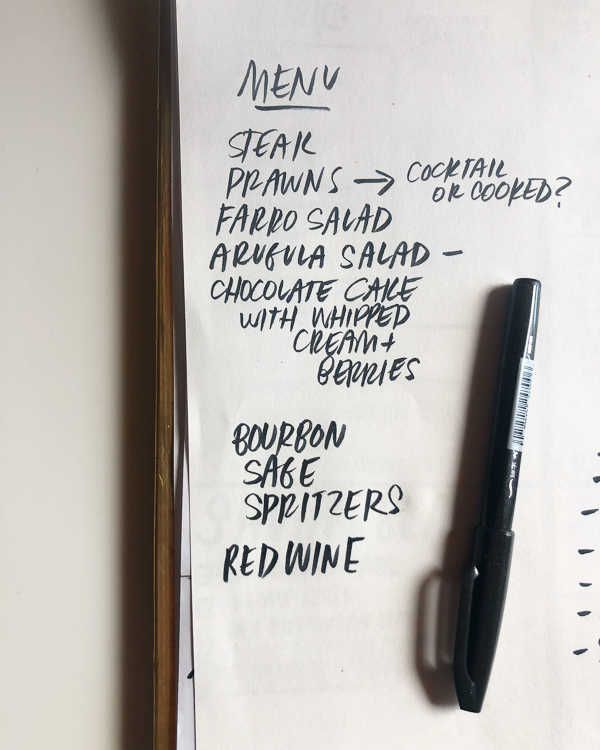 MENU
STEAK
PRAWNS → COCKTAIL
OR COOKED?
FARRO SALAD
ARUGULA SALAD –
CHOCOLATE CAKE
WITH WHIPPED
CREAM +
BERRIES
BOURBON
SAGE
SPRITZERS
RED WINE